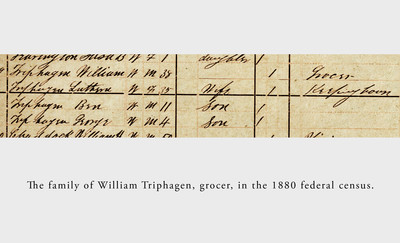 W F 1 daughter 1
Triphagen William W M 38 1 Grocer
Triphagen W F 35 Wife 1 Keeping house
Triphagen Ben W M 11 Son 1
Triphagen George W M 4 Son 1
William
The family of William Triphagen, grocer, in the 1880 federal census.